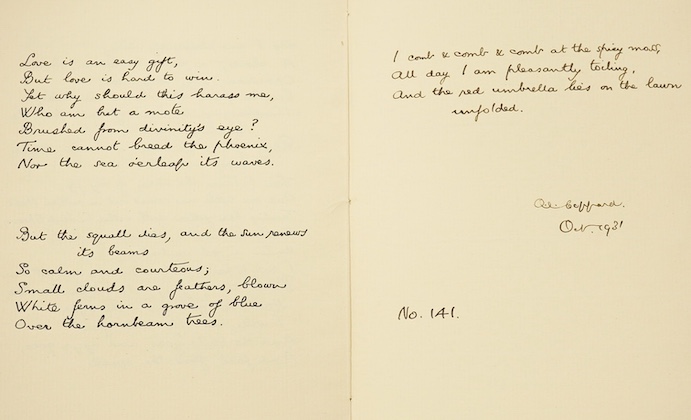 Love is an easy gift,
But love is hard to win.
Yet why should this harass me,
Who am but a mote
Brushed from divinity's eye?
Time cannot breed the phoenix,
Nor the sea o'erleap its waves.
But the squall dies, and the sun renews
its beams
So calm and courteous;
Small clouds are feathers, blown
White ferns in a grove of blue
Over the hornbeam trees.
I comb & comb & comb at the spicy mass,
All day I am pleasantly toiling,
And the red umbrella lies on the lawn
unfolded.
Coppard.
Oct. 1931
No. 141.